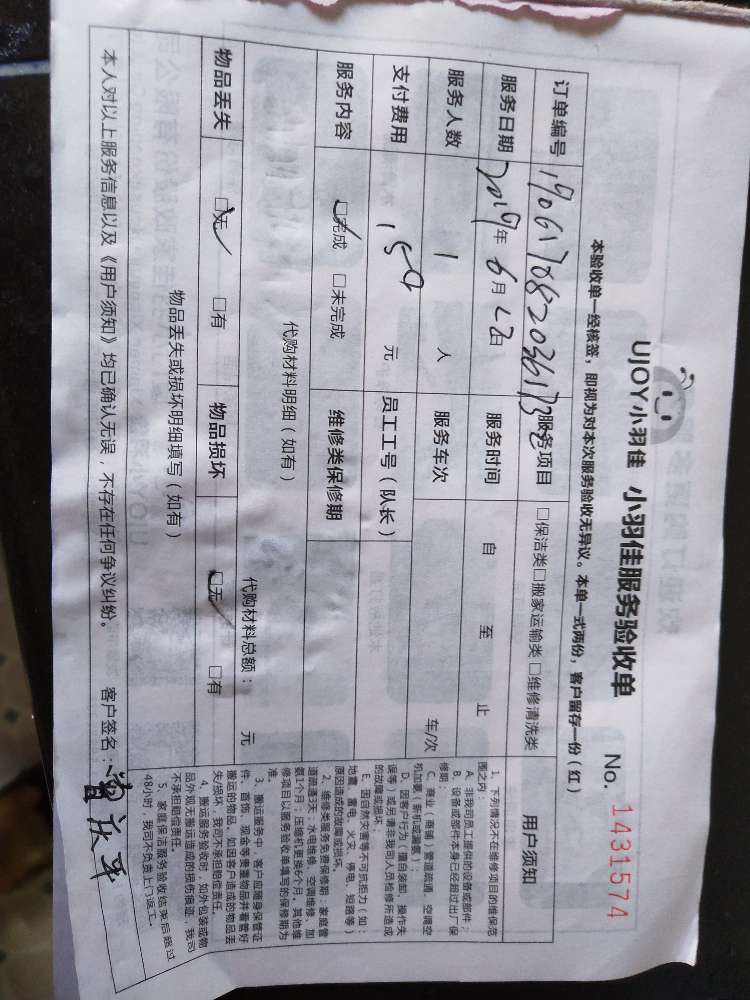 UJOY小羽佳 小羽佳服务验收单 No. 1431574
本验收单一经核签，即视为对本次服务验收无异议。本单一式两份，客户留存一份（红）
订单编号 服务项目 □保洁类□搬家运输类□维修清洗类
服务日期 2019年6月 日 服务时间 自 至 止
服务人数 1 人 服务车次 车/次
支付费用 150 元 员工工号（队长）
服务内容 □完成 □未完成 维修类保修期
代购材料明细（如有）
代购材料总额： 元
物品丢失 □无 □有 物品损坏 □无 □有
物品丢失或损坏明细填写（如有）
本人对以上服务信息以及《用户须知》均已确认无误，不存在任何争议纠纷。 客户签名：
用户须知
1、下列情况不在维修项目的维保范
围之内：
A、非我司员工提供的设备或部件；
B、设备或部件本身已经超过出厂保
修期；
C、商业（商铺）管道疏通、空调空
机加氟、新机或漏氟）；
D、因客户行为（擅自装卸、操作失
误等）或另请非我司人员检修所造成
的故障或损坏；
E、因自然灾害等不可抗拒力（如：
地震、雷电、火灾、停电、短路等）
原因造成的故障或损坏。
2、维修类服务免费保修期：家庭管
道疏通3天；水电维修、空调维修、加
氨1个月；压缩机更换6个月，其他维
修项目以服务验收单填写的保修期为
准。
3、搬运服务中，客户应随身保管证
件、首饰、现金等贵重物品并看管好
搬运的物品，如因客户造成的物品丢
失/损坏，我司不承担赔偿责任。
4、搬运服务验收时，如外包装或物
品外观无搬运造成的损伤痕迹，我司
不承担赔偿责任。
5、家庭保洁服务验收结束后超过
48小时，我司不负责上门返工。